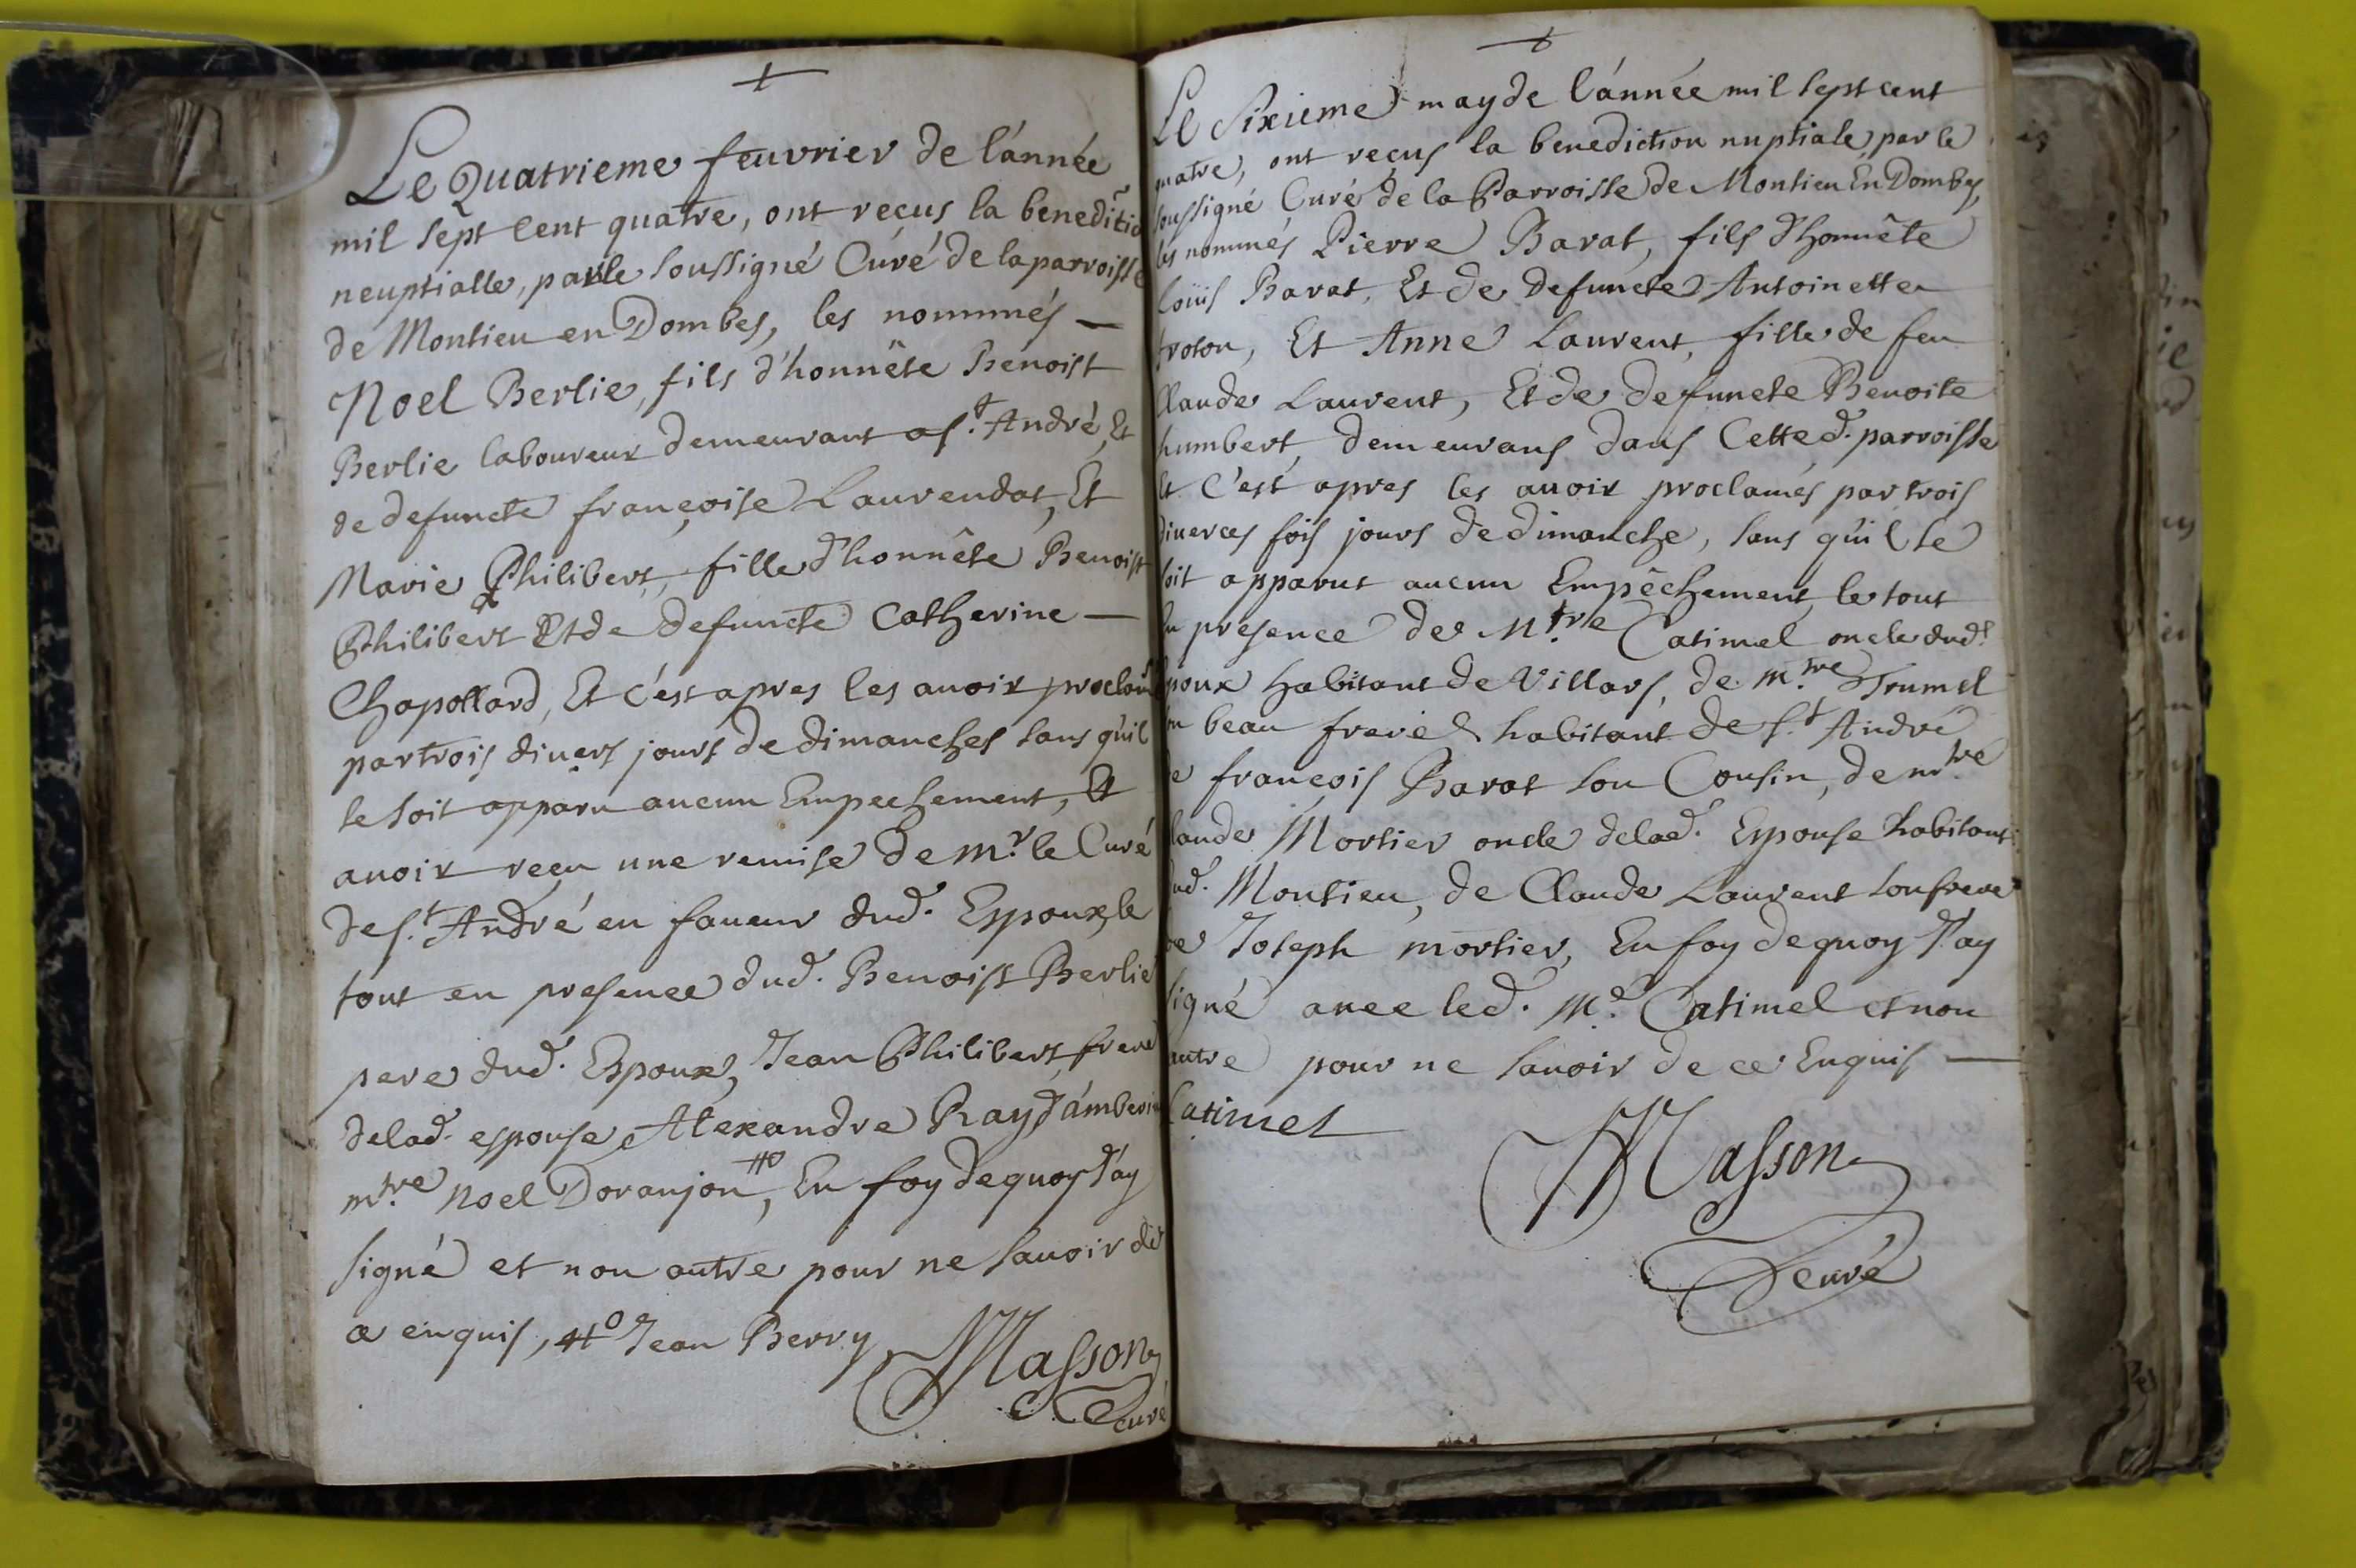 Le Quatrieme feuvrier de l'année
mil sept cent quatre, ont reçus la beneditio
neuptialle, par le soussigné Curé de la parroisse
de Montieu en Dombes, les nommés —
Noel Berlie, fils d'honnête Benoist
Berlie laboureur demeurant a s.t André, Et
de defuncte françoise Laurendat, Et
Marie Philibert, fille d'honnête Benoist
Philibert Et de defuncte Catherine —
Chapollard, Et c'est apres les auoir proclam
par trois diuers jours de dimanches sans qu'il
se soit apparu aucun Empechement, Et
auoir reçu une remise de m.r le Curé
de s.t André en faueur dud. Espoux, le
tout en presence dud. Benoist Berlie
pere dud. Espoux, Jean Philibert, frere
de lad. espouse, Alexandre Ray d'amberi
m.tre Noel Doranjon #o, En foy de quoy J'ay
signé et non autre pour ne sauoir de
ce enquis, #o Jean Berry
Masson
Curé
Le Sixieme may de l'année mil sept cent
quatre, ont reçus la benediction nuptiale, par le
soussigné Curé de la Parroisse de Montieu En Dombes,
les nommés Pierre Barat, fils d'honnête
Loüis Barat, Et de defuncte Antoinette
troton, Et Anne Laurent, fille de feu
Claude Laurent, Et de defuncte Benoite
humbert, demeurans dans Cetted. parroisse
Et C'est apres les auoir proclamés par trois
diuerces fois jours de dimanche, sans qu'il se
soit apparut aucun Empêchement, le tout
En presence de M.tre Catimel oncle dud.t
Epoux habitant de Villars, de m.tre Trumel
son beau frere habitant de s.t André
de françois Barat son Cousin, de m.tre
Claude Mortier oncle de lad. Espouse habitant
dud. Montieu, de Claude Laurent son frere
de Joseph mortier, En foy de quoy J'ay
signé auec led. M.e Catimel et non
autre pour ne sauoir de ce Enquis —
Catimel
Masson
Curé